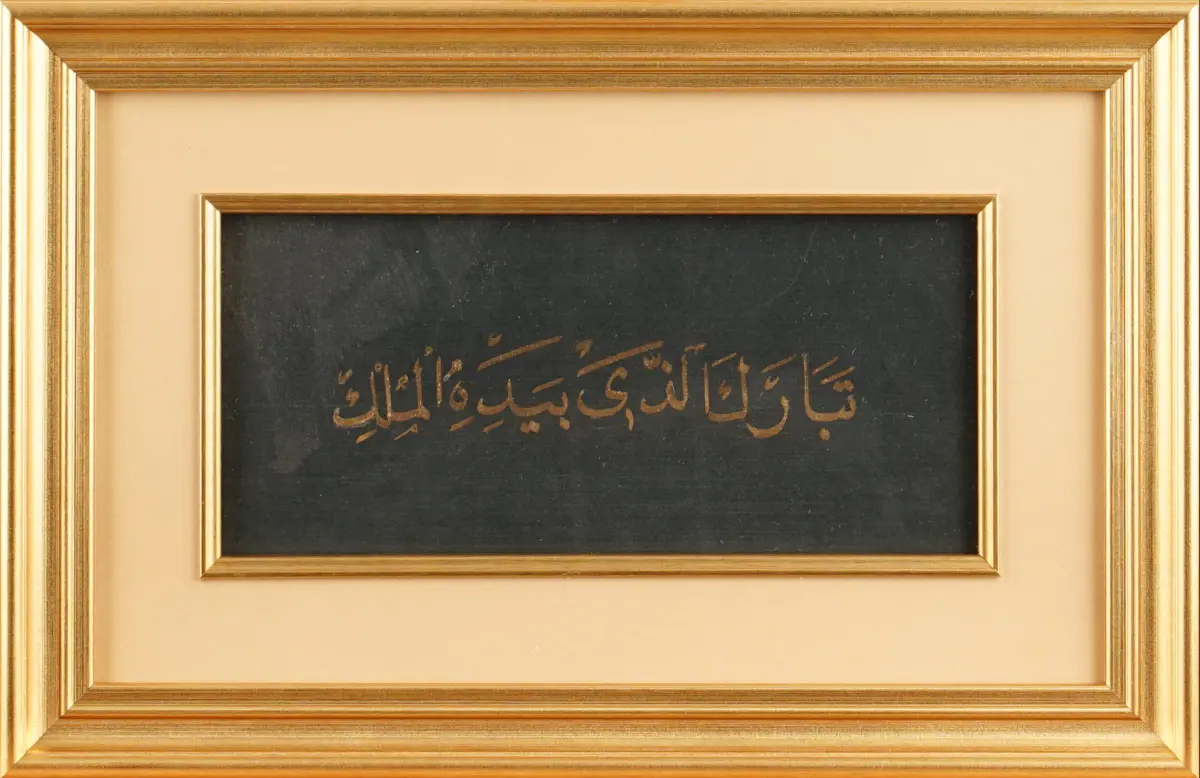 تَبَارَكَ الَّذّى بِيَدِهِ الْمُلْكِ